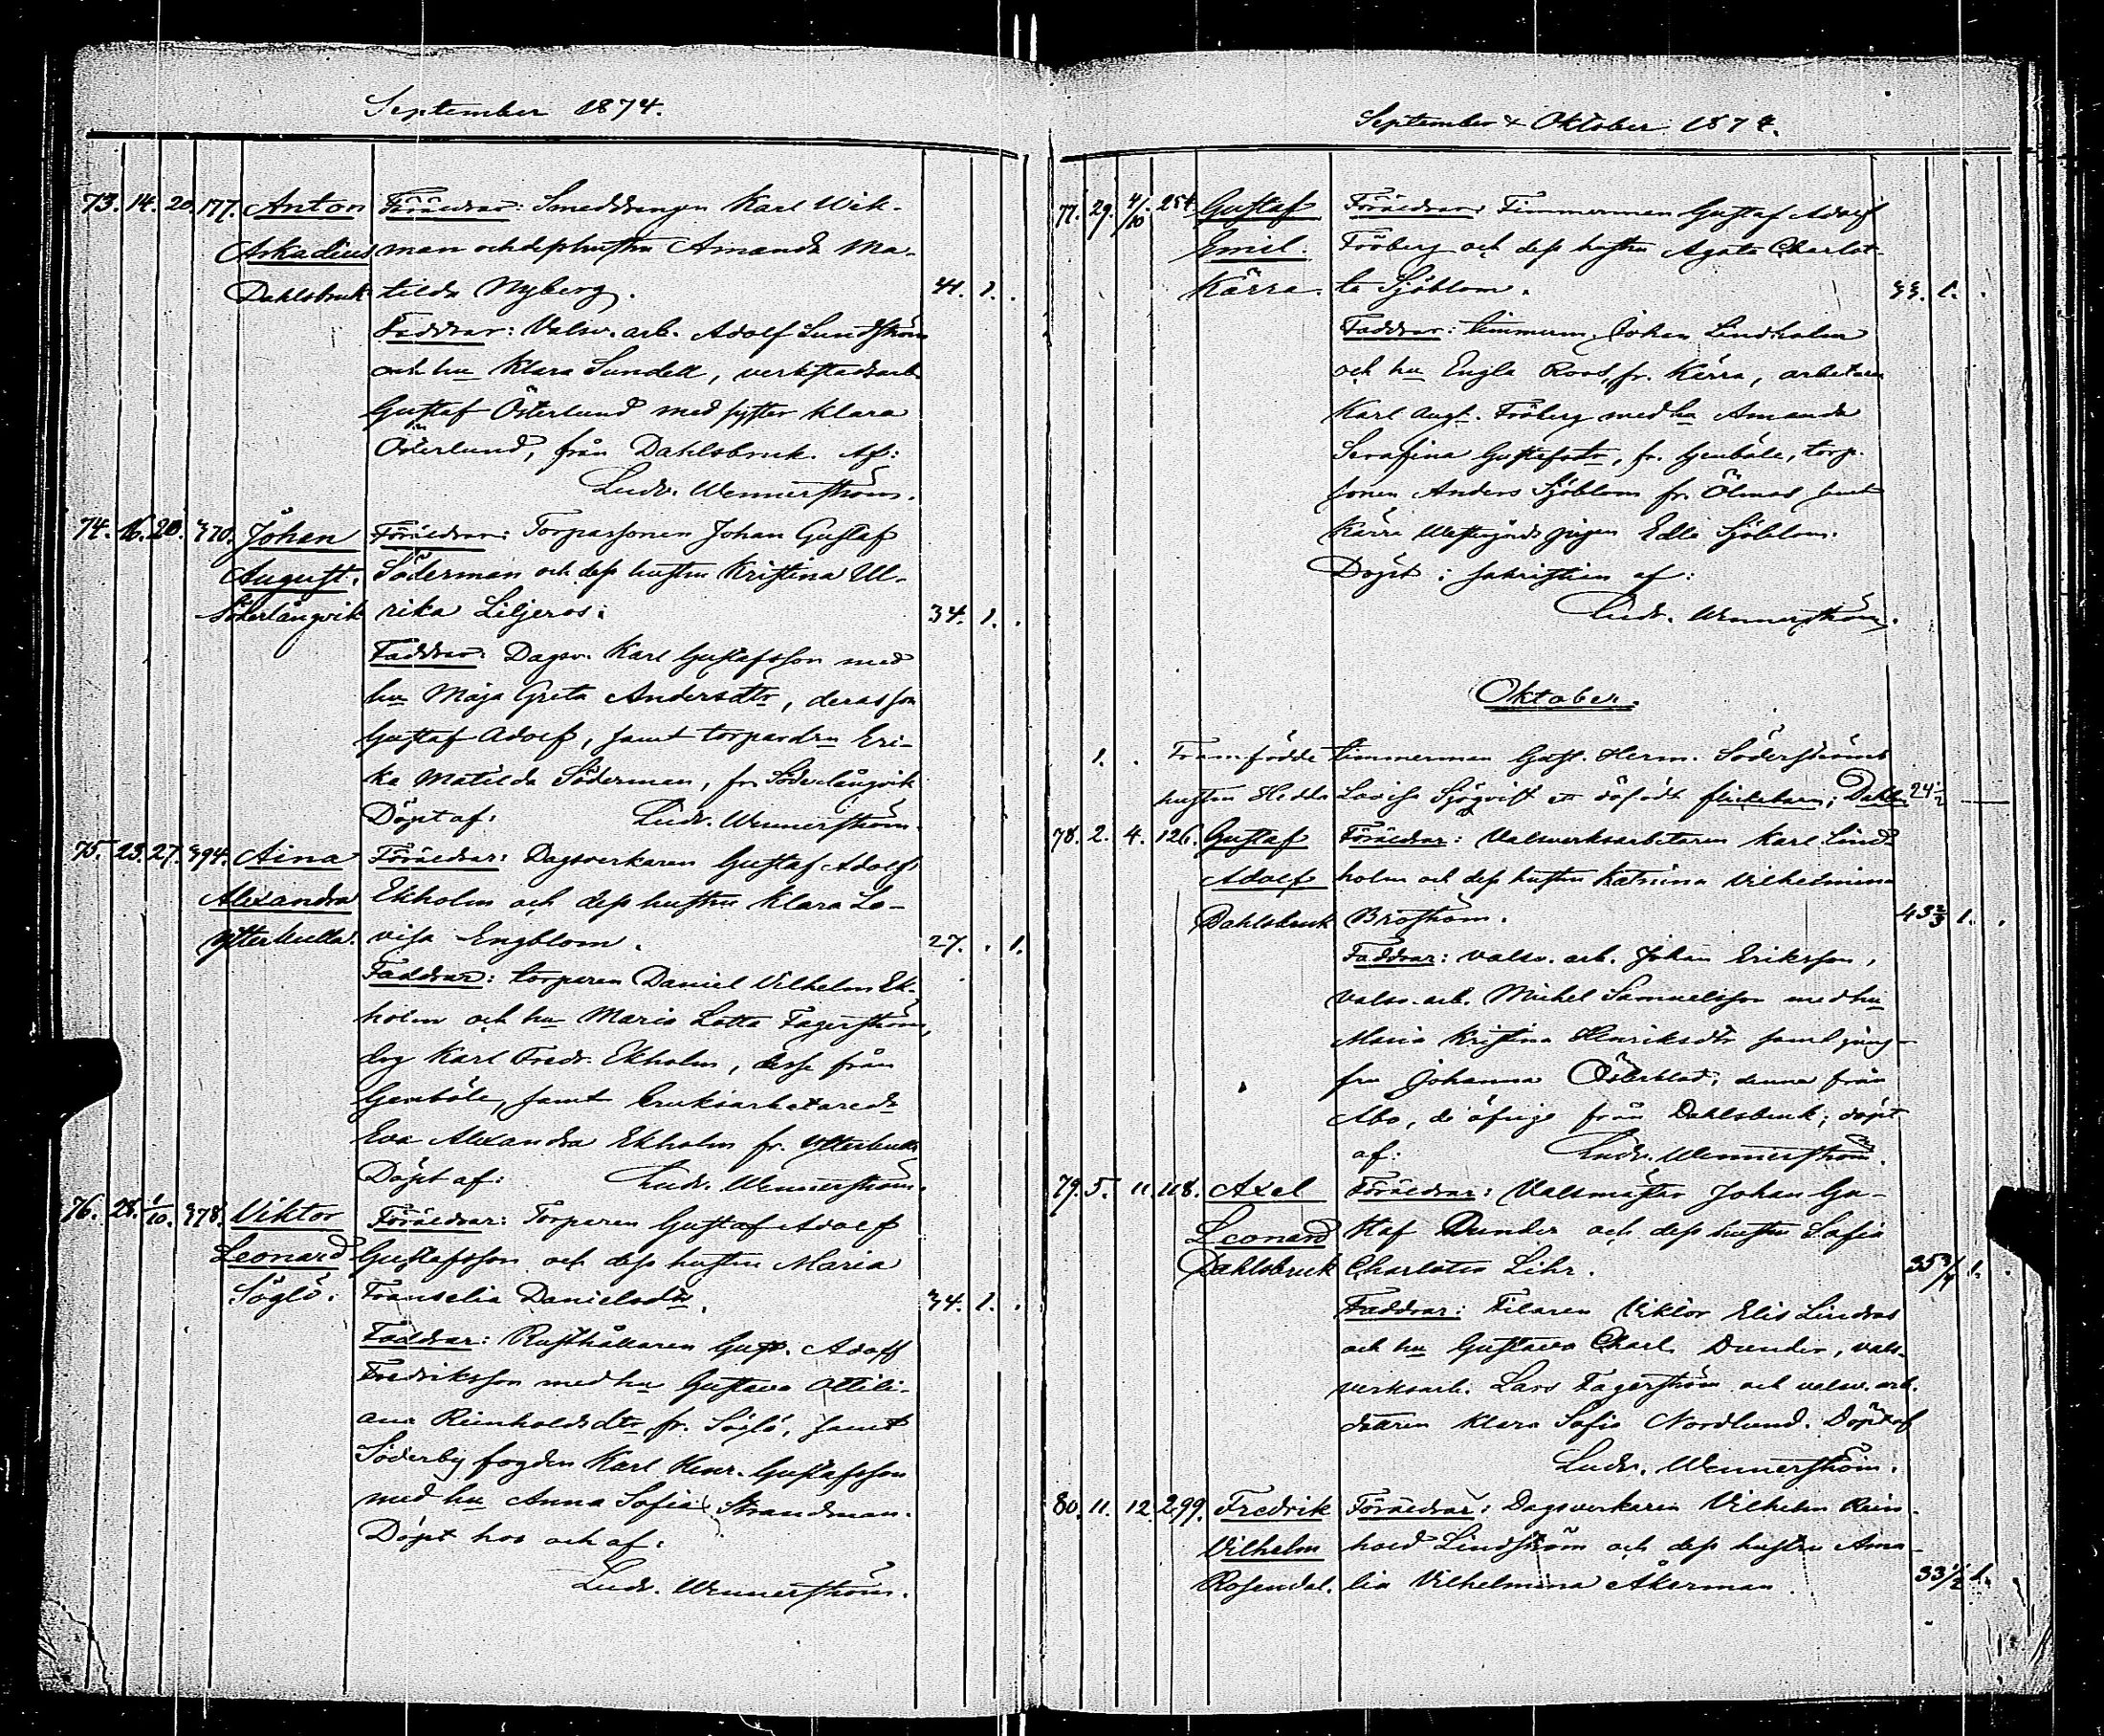 September 1874.
73. 14. 20. 177. Anton Föräldrar: Smeddrängen Karl Wik-
Arkadius man och dess hustru Amanda Ma-
Dahlsbruk tilda Nyberg. 41. 1.
Faddrar: Valsv. arb. Adolf Sundström
och hu Klara Sundell, verkstadsarb.
Gustaf Österlund med syster Klara
Österlund, från Dahlsbruk. Af:
Ludv. Wennerström.
74. 16. 20. 370. Johan Föräldrar: Torparsonen Johan Gustaf
August. Söderman och dess hustru Kristina Ul-
Söderlångvik rika Liljeros. 34. 1.
Faddrar: Dagsv. Karl Gustafsson med
hu Maja Greta Andersdtr, deras son
Gustaf Adolf, samt torpardrn Eri-
ka Matilda Söderman, fr. Söderlångvik
Döpt af: Ludv. Wennerström.
75. 23. 27. 394. Aina Föräldrar: Dagsverkaren Gustaf Adolf
Alexandra Ekholm och dess hustru Klara Lo-
Ytterkulla. visa Engblom. 27. . 1.
Faddrar: torparen Daniel Vilhelm Ek-
holm och hu Maria Lotta Fagerström,
drg Karl Fredr. Ekholm, desse från
Genböle, samt bruksarbetaredtr
Eva Alexandra Ekholm fr. Ytterkulla
Döpt af: Ludv. Wennerström.
76. 28. 1/10. 378. Viktor Föräldrar: Torparen Gustaf Adolf
Leonard Gustafsson och dess hustru Maria
Söglö. Franselia Danielsdtr. 34. 1.
Faddrar: Rusthållaren Gust. Adolf
Fredriksson med hu Gustava Ottili-
ana Reinholdsdtr fr. Söglö, samt
Söderby fogden Karl Henr. Gustafsson
med hu Anna Sofia Strandman.
Döpt hos och af:
Ludv. Wennerström.
September & Oktober 1874.
77. 29. 4/10. 254. Gustaf Föräldrar: Timmerman Gustaf Adolf
Emil. Fröberg och dess hustru Agata Charlot-
Kärra. ta Sjöblom. 33. 1.
Faddrar: timmerm. Johan Lindholm
och hu Engla Roos, fr. Kärra, arbetaren
Karl Augt. Fröberg med hu Amanda
Serafina Gustafsdtr, fr. Genböle, torp.
sonen Anders Sjöblom fr. Ölmos samt
Kärra Westergårds pigan Edla Sjöblom.
Döpt i sakristian af:
Ludv. Wennerström.
Oktober.
1. . Framfödde timmerman Gust. Herm. Söderströms
hustru Hedda Lovisa Sjöqvist ett dödfödt flickebarn; Dahlsb. 24 1/2
78. 2. 4. 126. Gustaf Föräldrar: Valsverksarbetaren Karl Lind-
Adolf holm och dess hustru Katrina Vilhelmina
Dahlsbruk Broström. 43 2/3 1.
Faddrar: valsv. arb. Johan Eriksson,
valsv. arb. Mickel Samuelsson med hu
Maria Kristina Henriksdtr samt jung-
fru Johanna Österblad; denna från
Åbo, de öfrige från Dahlsbruk; döpt
af: Ludv. Wennerström.
79. 5. 11. 118. Axel Föräldrar: Valsmäster Johan Gu-
Leonard staf Dunder och dess hustru Sofia
Dahlsbruk Charlotta Lihr. 35 3/4 1.
Faddrar: Filaren Viktor Elis Lindros
och hu Gustava Charl. Dunder, vals-
verksarb. Lars Fagerström och valsv. arb.
Klara Sofia Nordlund. Döpt af
Ludv. Wennerström.
80. 11. 12. 299. Fredrik Föräldrar: Dagsverkaren Vilhelm Rein-
Vilhelm hold Lindström och dess hustru Ama-
Rosendal. lia Vilhelmina Åkerman. 33 1/2 1.